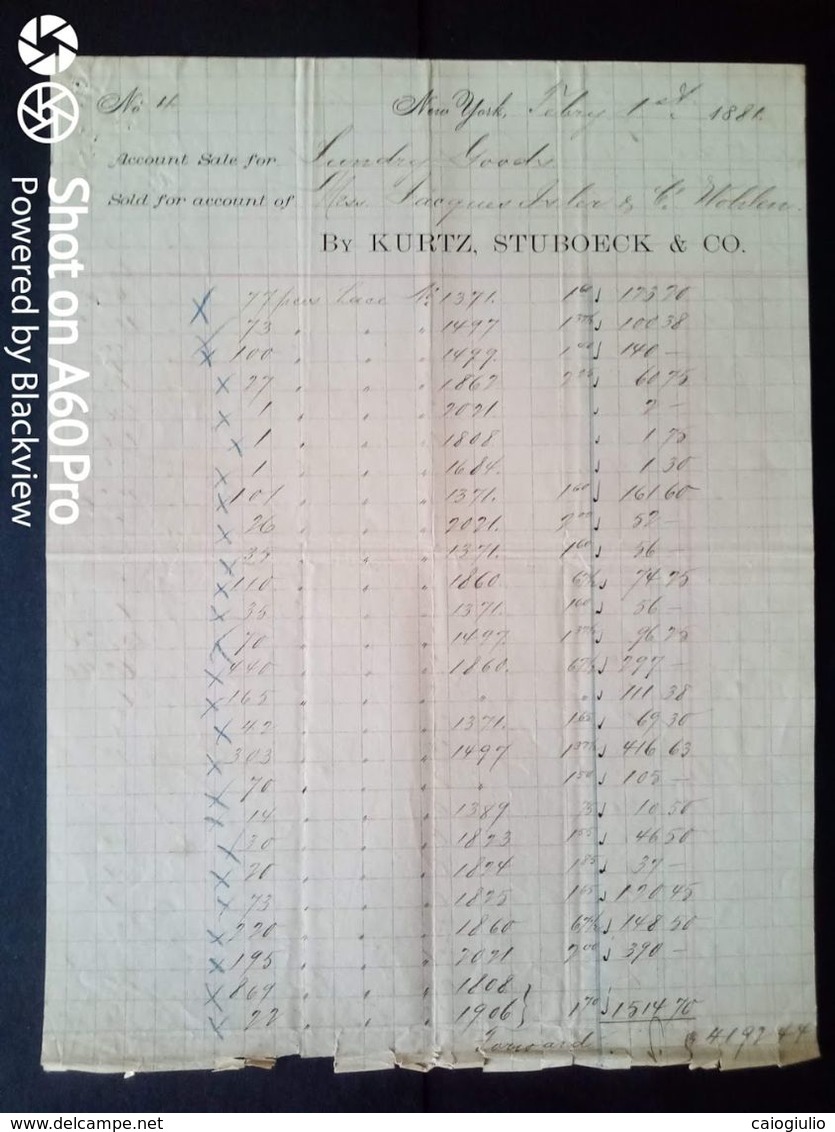 No 4 New York, Febry 1st 1881.
Account Sale for Sundry Goods
Sold for account of Mess. Jacques Isler & Co Wohlen.
By KURTZ, STUBOECK & CO.
77 pces Lace No 1371. 173 20
73 " " " 1497 1 37½ 100 38
100 " " " 1499 1 40 140 —
27 " " " 1862 2 25 60 75
1 " " " 2021 2 —
1 " " " 1808 1 75
1 " " " 1684. 1 30
101 " " " 1371. 1 60 161 60
26 " " " 2021. 2 00 52 —
35 " " " 1371. 1 60 56 —
110 " " " 1860. 67½ 74 25
35 " " " 1371. 1 60 56 —
70 " " " 1497. 1 37½ 96 25
440 " " " 1860. 67½ 297 —
165 " " " " " 111 38
42 " " " 1371. 1 65 69 30
303 " " " 1497 1 37½ 416 63
70 " " " " 1 50 105 —
14 " " " 1389 75 10 50
30 " " " 1823 1 55 46 50
20 " " " 1824 1 85 37 —
73 " " " 1825 1 65 120 45
220 " " " 1860 67½ 148 50
195 " " " 2021 2 00 390 —
869 " " " 1808 }
22 " " " 1906 } 1 70 1514 70
Forward $ 4192 44
Shot on A60 Pro
Powered by Blackview
delcampe.net
caiogiulio